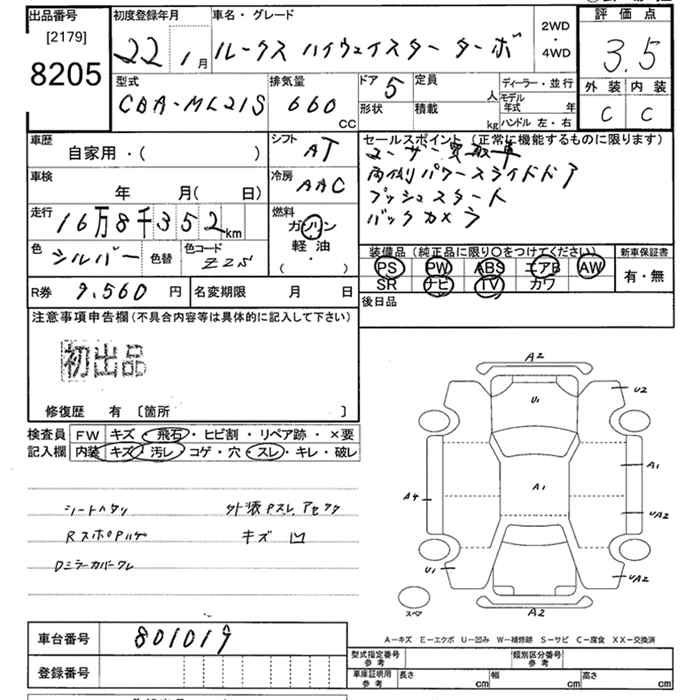 出品番号
[2179]
8205
初度登録年月
22 1月
車名・グレード
ルークス ハイウェイスター ターボ
2WD
・
4WD
評価点
3.5
外装 内装
C C
型式
CBA-ML21S
排気量
660 CC
ドア 5
形状
定員 人
積載 kg
ディーラー・並行
モデル年式 年
ハンドル 左・右
車歴
自家用・( )
車検
年 月( 日)
走行
16万8千352km
色 シルバー 色替
色コード Z2S
シフト AT
冷房 AAC
燃料
ガソリン
軽油・
( )
セールスポイント (正常に機能するものに限ります)
ユーザー買取車
両側パワースライドドア
プッシュスタート
バックカメラ
装備品(純正品に限り○をつけてください)
PS PW ABS エアB AW
SR ナビ TV カワ
新車保証書
有・無
R券 9,560 円
名変期限 月 日
後日品
注意事項申告欄(不具合内容等は具体的に記入して下さい)
初出品
修復歴 有 〔箇所 〕
検査員記入欄
FW キズ・飛石・ヒビ割・リペア跡・×要
内装 キズ・汚レ・コゲ・穴・スレ・キレ・破レ
シートヘタリ
外装Pスレ、アセラク
RスポPハゲ
キズ 凹
Dミラーカバーワレ
A2
U1
U2
A1
A1
A4
UA2
U1
UA2
A2
スペア
A-キズ E-エクボ U-凹み W-補修跡 S-サビ C-腐食 XX-交換済
車台番号 801019
登録番号
型式指定番号 参考
類別区分番号 参考
車庫証明用 参考
長さ cm 幅 cm 高さ cm